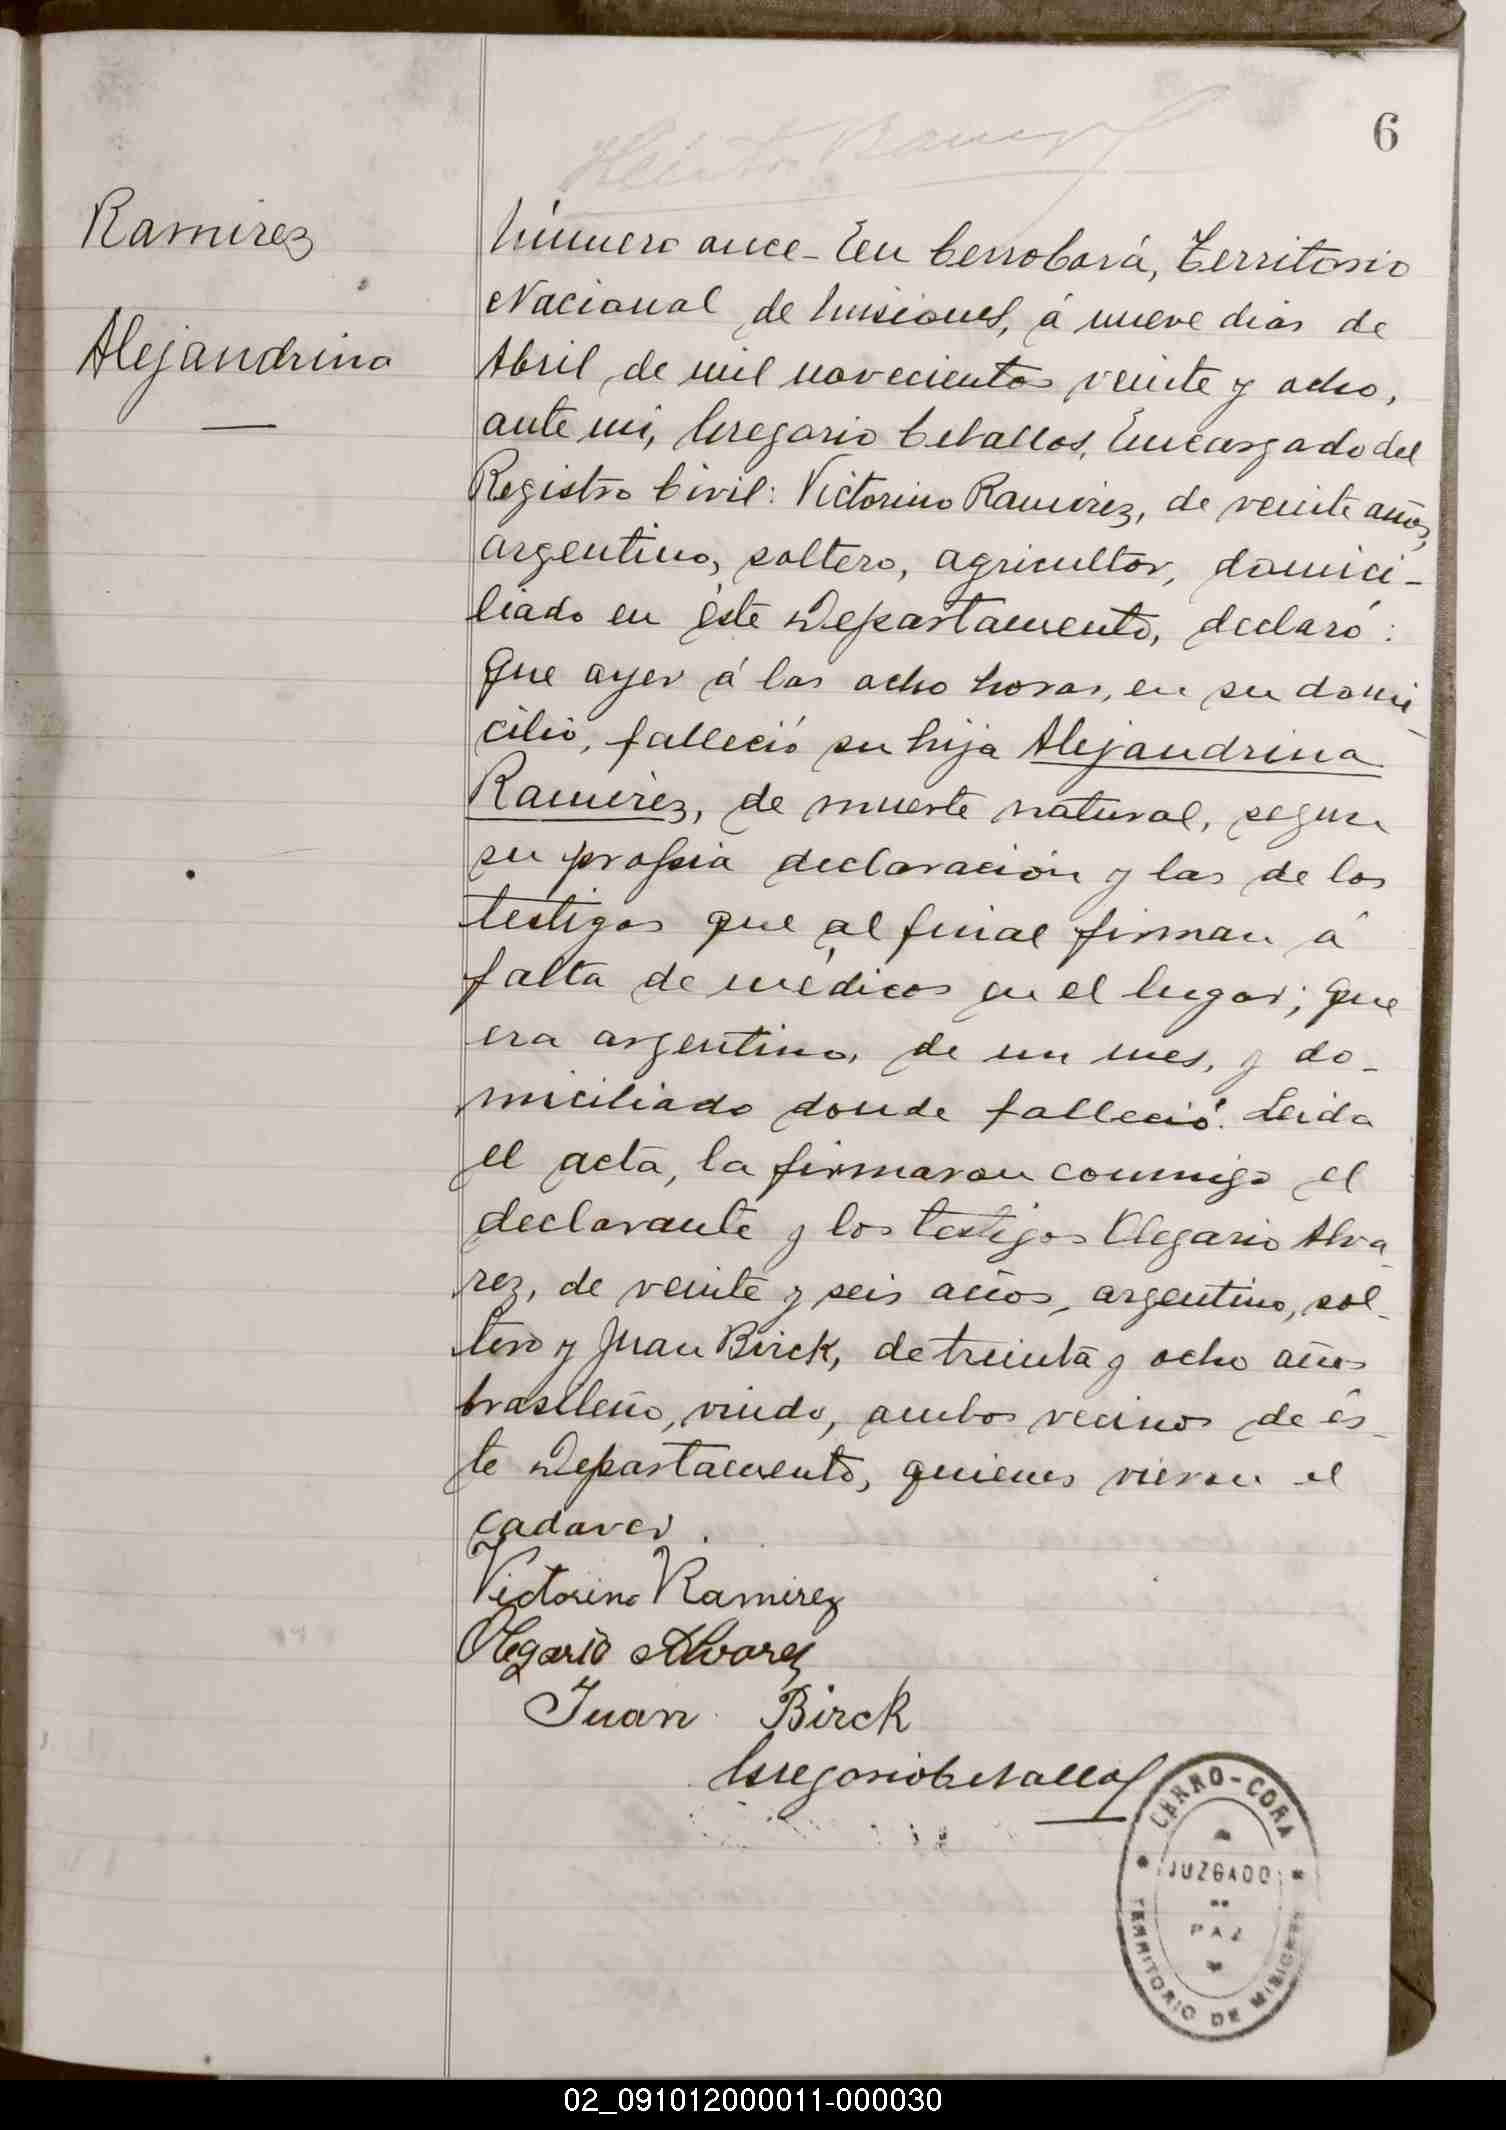 6
Ramirez
Alejandrina
Número once - En Cerro Corá, Territorio
Nacional de Misiones, á nueve dias de
Abril de mil novecientos veinte y ocho,
ante mi, Gregorio Cevallos, Encargado del
Registro Civil: Victorino Ramirez, de veinte años,
argentino, soltero, agricultor, domici-
liado en éste Departamento, declaró:
Que ayer á las ocho horas, en su domi-
cilio, falleció su hija Alejandrina
Ramirez, de muerte natural, segun
su propia declaración y las de los
testigos que al final firman á
falta de médicos en el lugar; que
era argentina, de un mes, y do-
miciliado donde falleció. Leida
el acta, la firmaron conmigo el
declarante y los testigos Olegario Alva
rez, de veinte y seis años, argentino, sol-
tero y Juan Birck, de treinta y ocho años
brasileño, viudo, ambos vecinos de és-
te Departamento, quienes vieron el
cadaver.
Victorino Ramirez
Olegario Alvarez
Juan Birck
Gregorio Cevallos
CERRO-CORA
JUZGADO
DE
PAZ
TERRITORIO DE MISIONES
02_091012000011-000030